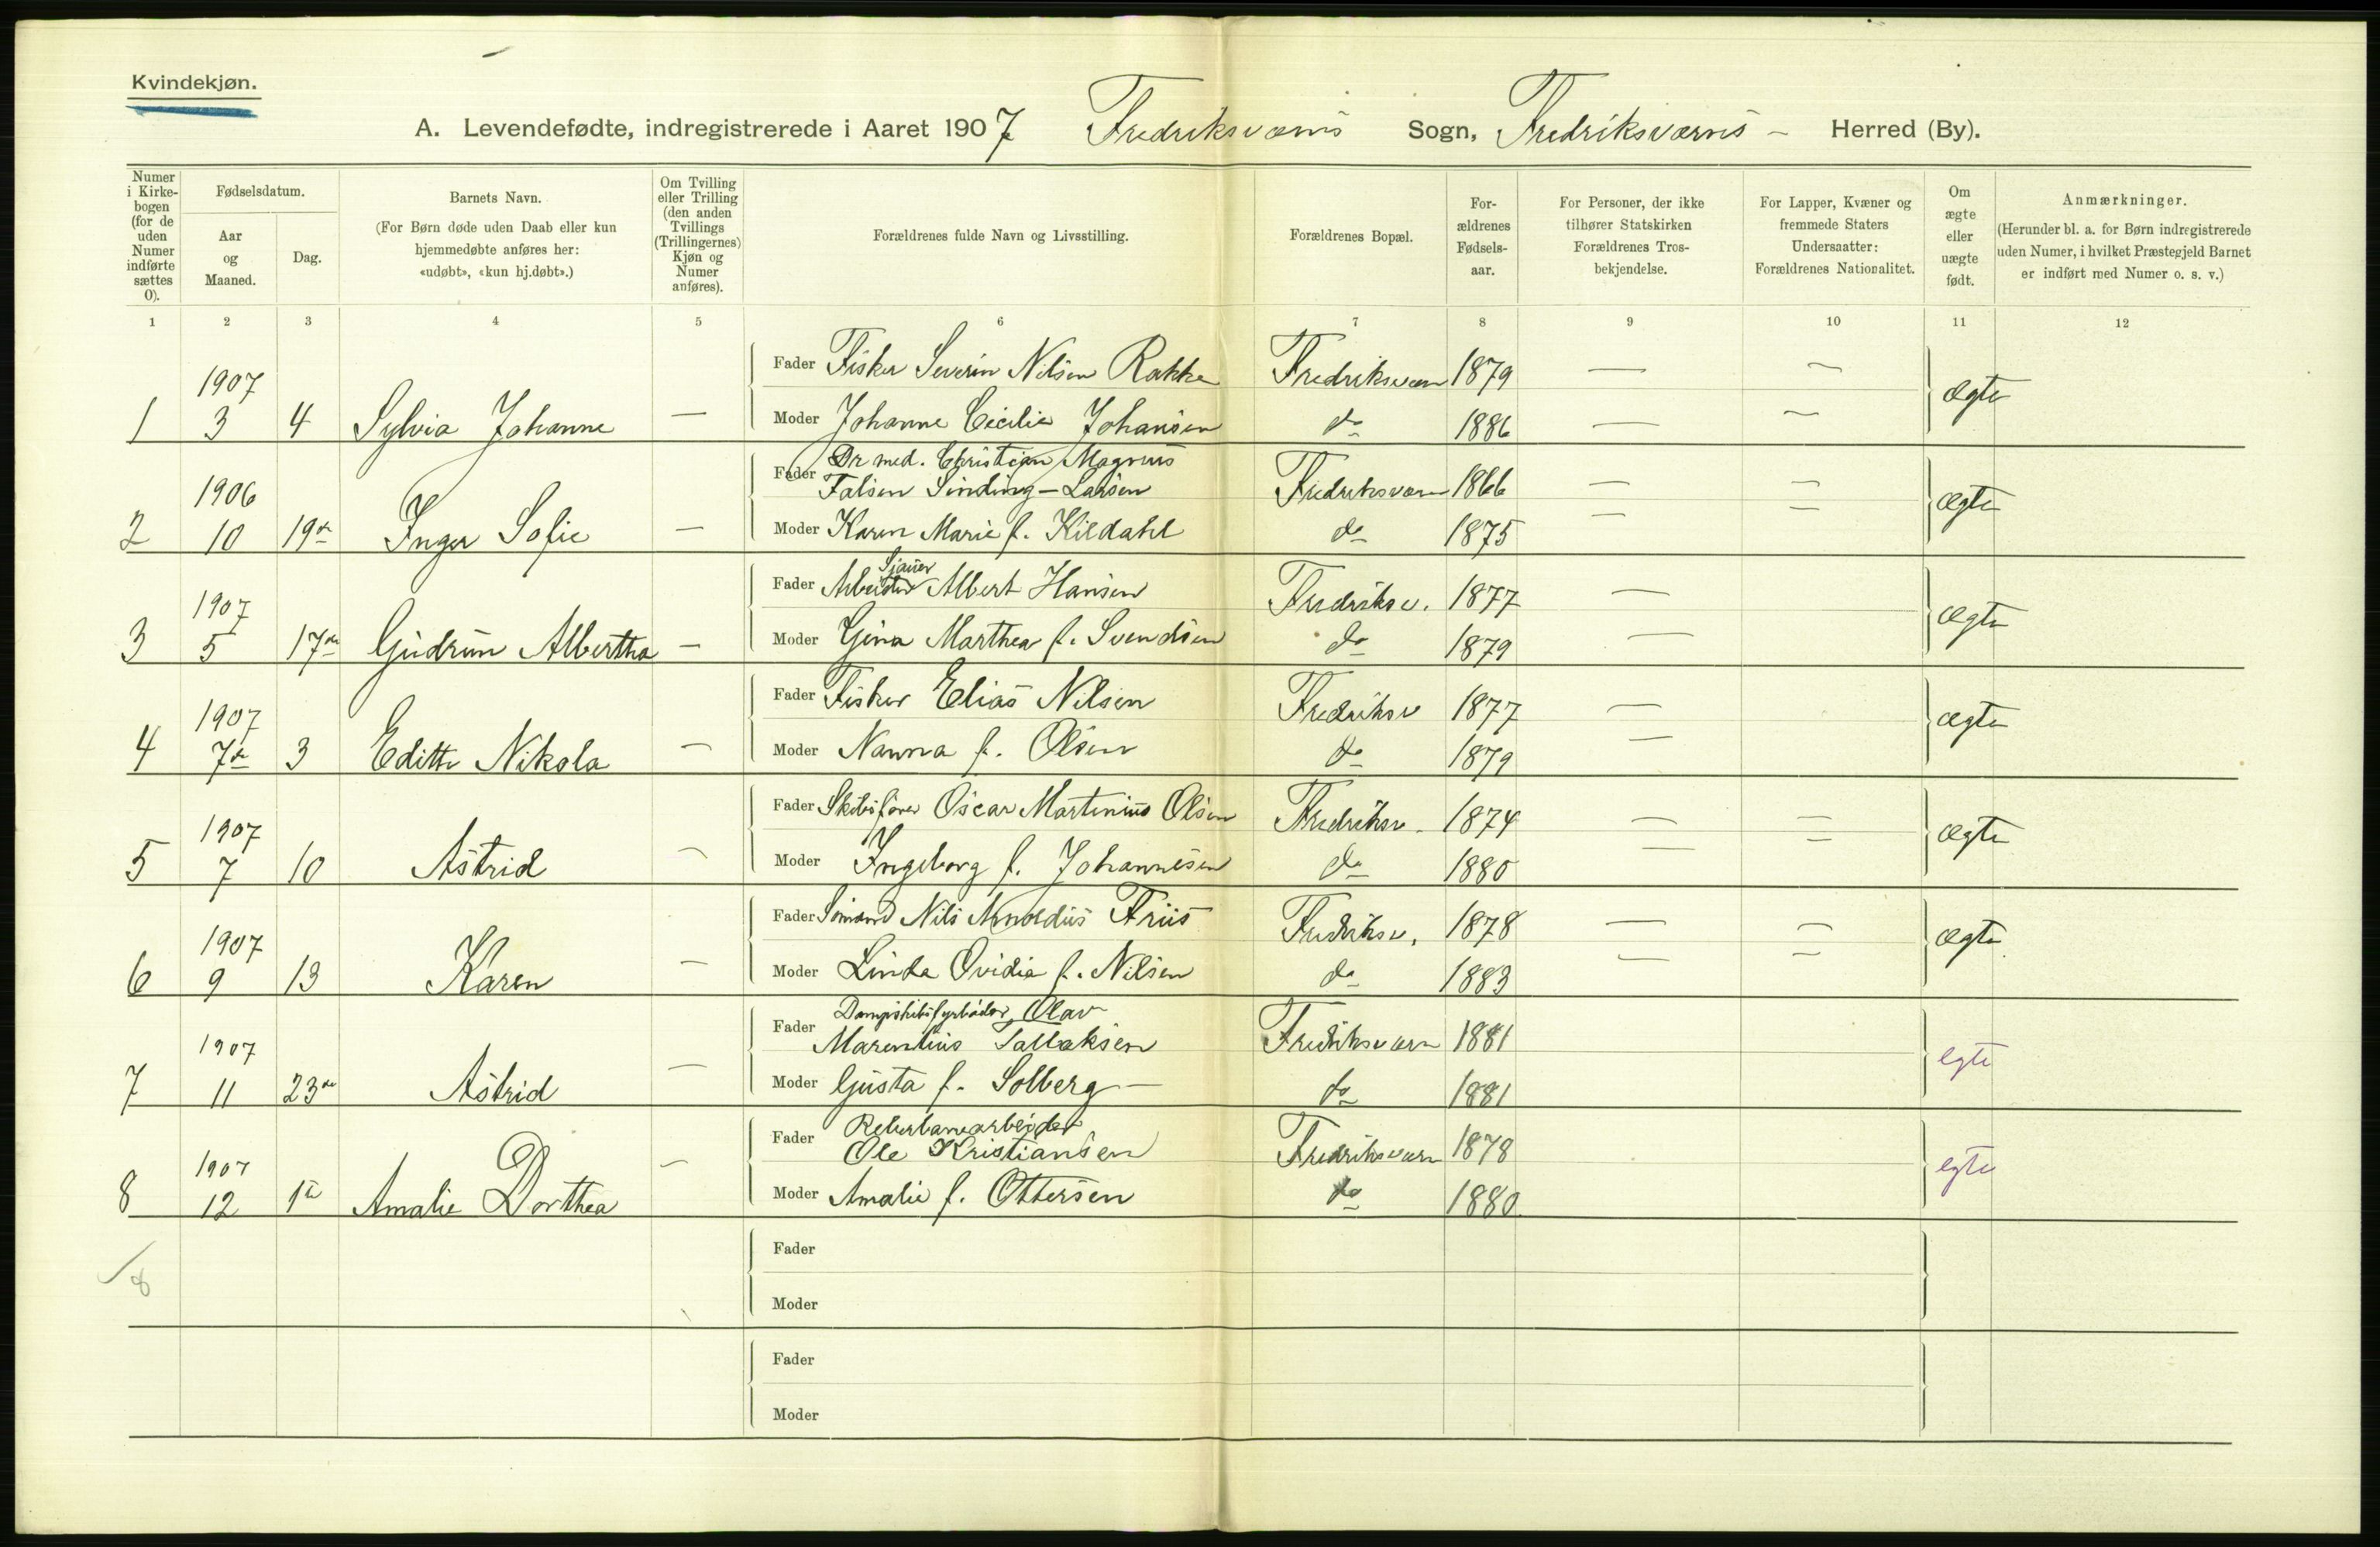 Kvindekjøn.
A. Levendefødte, indregistrerede i Aaret 1907 Fredriksværns Sogn, Fredriksværns – Herred (By).
Numer i Kirkebogen (for de uden Numer indførte sættes 0).
Fødselsdatum.
Aar og Maaned.
Dag.
Barnets Navn.
(For Børn døde uden Daab eller kun hjemmedøbte anføres her: «udøbt», «kun hj.døbt».)
Om Tvilling eller Trilling (den anden Tvillings (Trillingernes) Kjøn og Numer anføres).
Forældrenes fulde Navn og Livsstilling.
Forældrenes Bopæl.
Forældrenes Fødselsaar.
For Personer, der ikke tilhører Statskirken Forældrenes Trosbekjendelse.
For Lapper, Kvæner og fremmede Staters Undersaatter: Forældrenes Nationalitet.
Om ægte eller uægte født.
Anmærkninger.
(Herunder bl. a. for Børn indregistrerede uden Numer, i hvilket Præstegjeld Barnet er indført med Numer o. s. v.)
1 2 3 4 5 6 7 8 9 10 11 12
Fader Fisker Severin Nilsen Rakke Fredriksværn 1879 — —
1907 ægte
1 3 4 Sylvia Johanne — Moder Johanne Cecilie Johansen do 1886 — —
Fader Dr med. Christian Magnus
1906 Falsen Sinding-Larsen Fredriksværn 1866 — — ægte
2 10 19de Inger Sofie — Moder Karen Marie f. Kildahl do 1875 — —
Sjauer
Fader Arbeider Albert Hansen Fredriksv. 1877 —
1907 ægte
3 5 17de Gudrun Albertha — Moder Gina Marthea f. Svendsen do 1879 —
Fader Fisker Elias Nilsen Fredriksv 1877 —
1907 ægte
4 7de 3 Edith Nikola — Moder Nanna f. Olsen do 1879 —
Fader Skibsfører Oscar Martinius Olsen Fredriksv. 1874 — —
1907 ægte
5 7 10 Astrid — Moder Ingeborg f. Johannesen do 1880 — —
Fader Sömand Nils Arnoldus Friis Fredriksv. 1878 — —
1907 ægte
6 9 13 Karen — Moder Linda Ovidia f. Nilsen do 1883 — —
Fader Dampskibsfyrbøder, Olav
1907 Marentius Tallaksen Fredriksværn 1881 egte
7 11 23de Astrid — Moder Gusta f. Solberg — do 1881
Fader Reberbanearbeider
1907 Ole Kristiansen Fredriksværn 1878 egte
8 12 1te Amalie Dorthea — Moder Amalie f. Ottersen do 1880
Fader
8
Moder
Fader
Moder